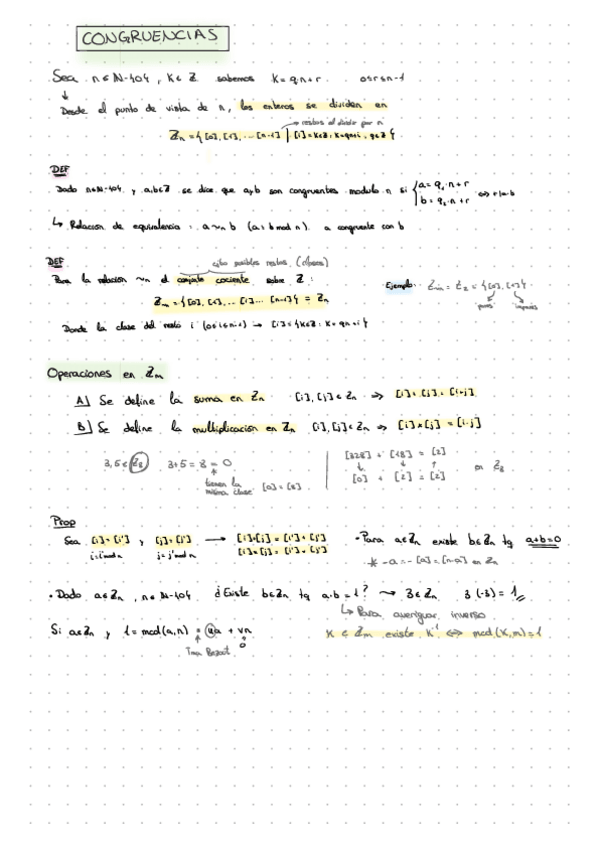 CONGRUENCIAS
Sea n ∈ N-{0}, K ∈ Z sabemos K = q·n+r 0≤r≤n-1
Desde el punto de vista de n, los enteros se dividen en
→ restos al dividir por n
Zn = { [0], [1], ... [n-1] | [i] = K∈Z: K=qn+i, q∈Z }
DEF
Dado n∈N-{0} y a,b∈Z se dice que a y b son congruentes modulo n si { a = q₁·n+r
b = q₂·n+r
↳ Relación de equivalencia: a ~n b (a≡b mod n) a congruente con b
DEF
posibles restos (clases)
Para la relación ~n el conjunto cociente sobre Z:
Ejemplo:
= Z₂ = { [0], [1] }
pares impares
= { [0], [1], ... [i] ... [n-1] } = Zn
Donde la clase del resto i (0≤i≤n-1) → [i] = { K∈Z: K=qn+i }
Operaciones en Zm
A) Se define la suma en Zn [i], [j] ∈ Zn ⇒ [i]+[j] = [i+j]
B) Se define la multiplicación en Zn [i], [j] ∈ Zn ⇒ [i]*[j] = [i·j]
3,5 ∈ Z8 3+5 = 8 = 0
tienen la
misma clase [0] = [8]
[328] + [18] = [2]
[0] + [2] = [2]
en Z8
Prop
Sea [i]=[i'] y [j]=[j'] → [i]+[j] = [i']+[j']
i≡i' mod n j≡j' mod n [i]*[j] = [i']*[j']
• Para a∈Zn existe b∈Zn tq a+b=0
* -a = -[a] = [n-a] en Zn
• Dado a∈Zn, n∈N-{0} ¿Existe b∈Zn tq a·b=1?
↳ Para averiguar inverso
Si a∈Zn y 1=mcd(a,n) = ua + vn
0
Tma Bezout
K ∈ Zm existe K⁻¹ ⇔ mcd(K,m)=1